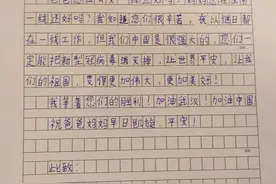 一线还好吗？我知道您们很辛苦，我以
在一线工作，但我们中国是很强大的，您们一
定能把新型冠病毒消灭掉，让世界平安，让我
们的祖国，变得更加伟大，更加美好！
我等着您们的胜利！加油武汉！加油中国！
祝爸爸妈妈早日凯旋，平安！
此致：